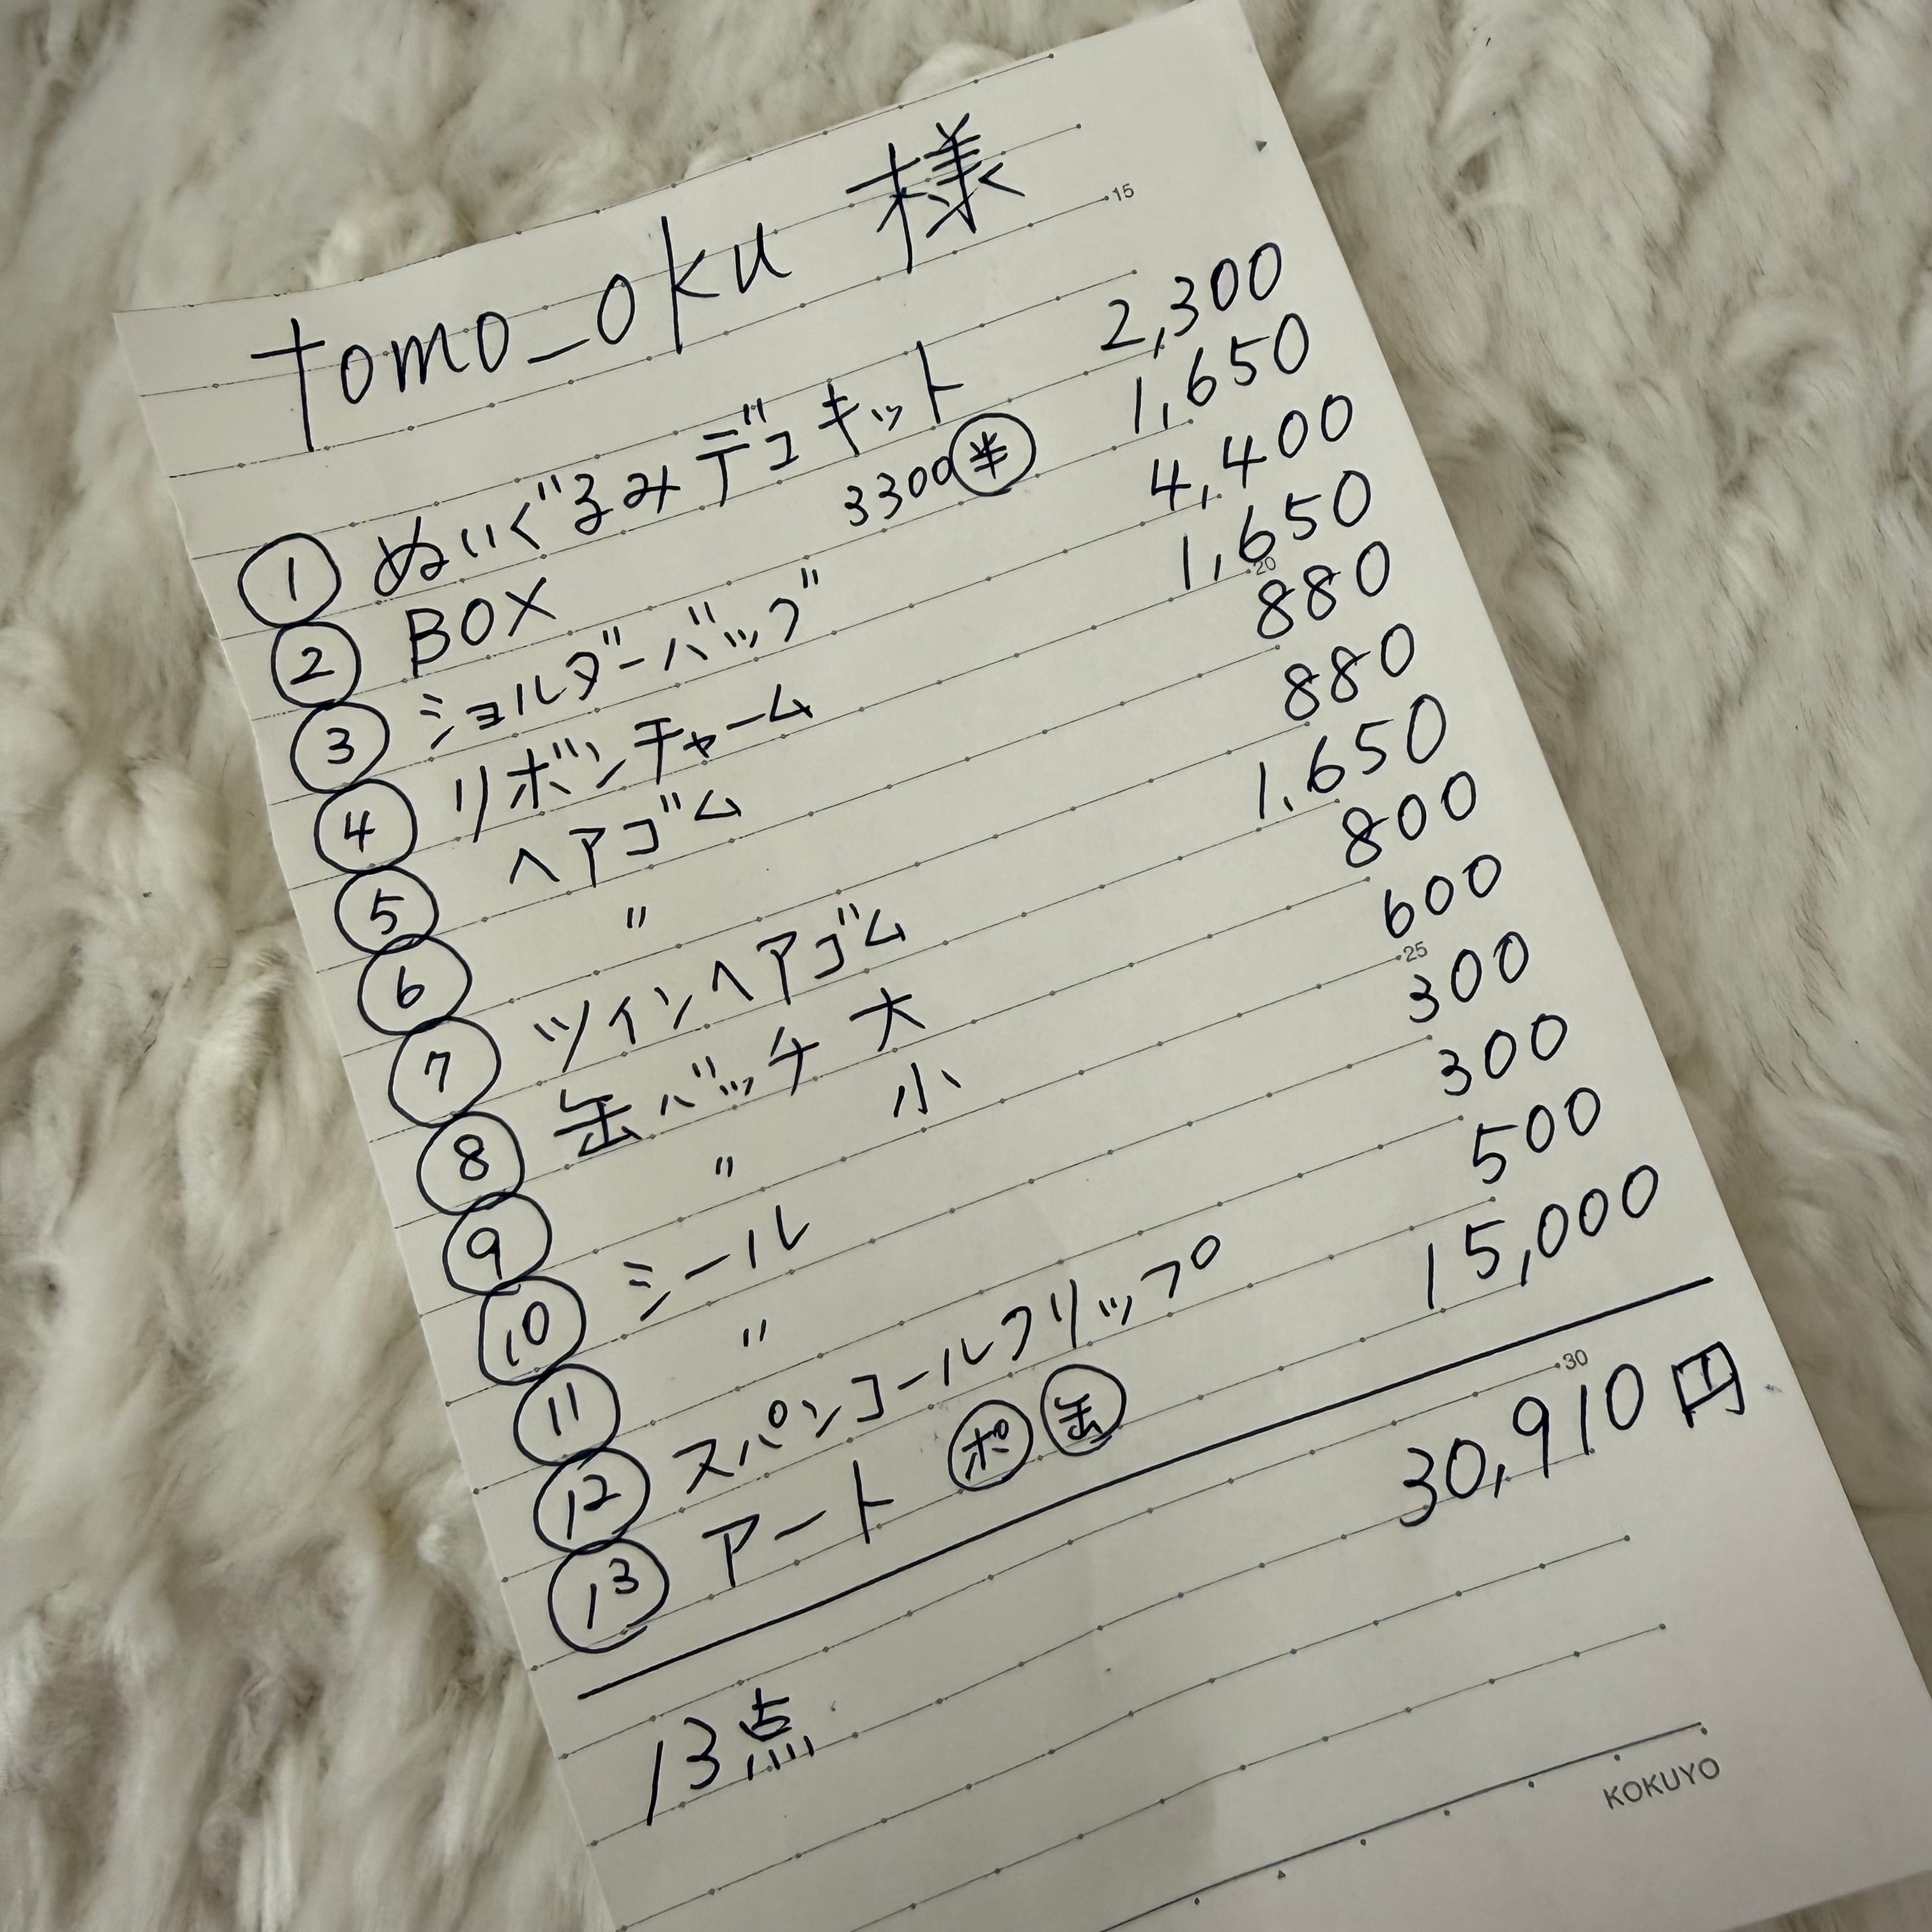 tomo_oku 様
15
① ぬいぐるみデコキット 2,300
② BOX 3300半 1,650
③ ショルダーバッグ 4,400
④ リボンチャーム 1,650
20
⑤ ヘアゴム 880
⑥ 〃 880
⑦ ツインヘアゴム 1,650
⑧ 缶バッチ 大 800
⑨ 〃 小 600
25
⑩ シール 300
⑪ 〃 300
⑫ スパンコールクリップ 500
⑬ アート ポ 缶 15,000
30
30,910円
13点
KOKUYO